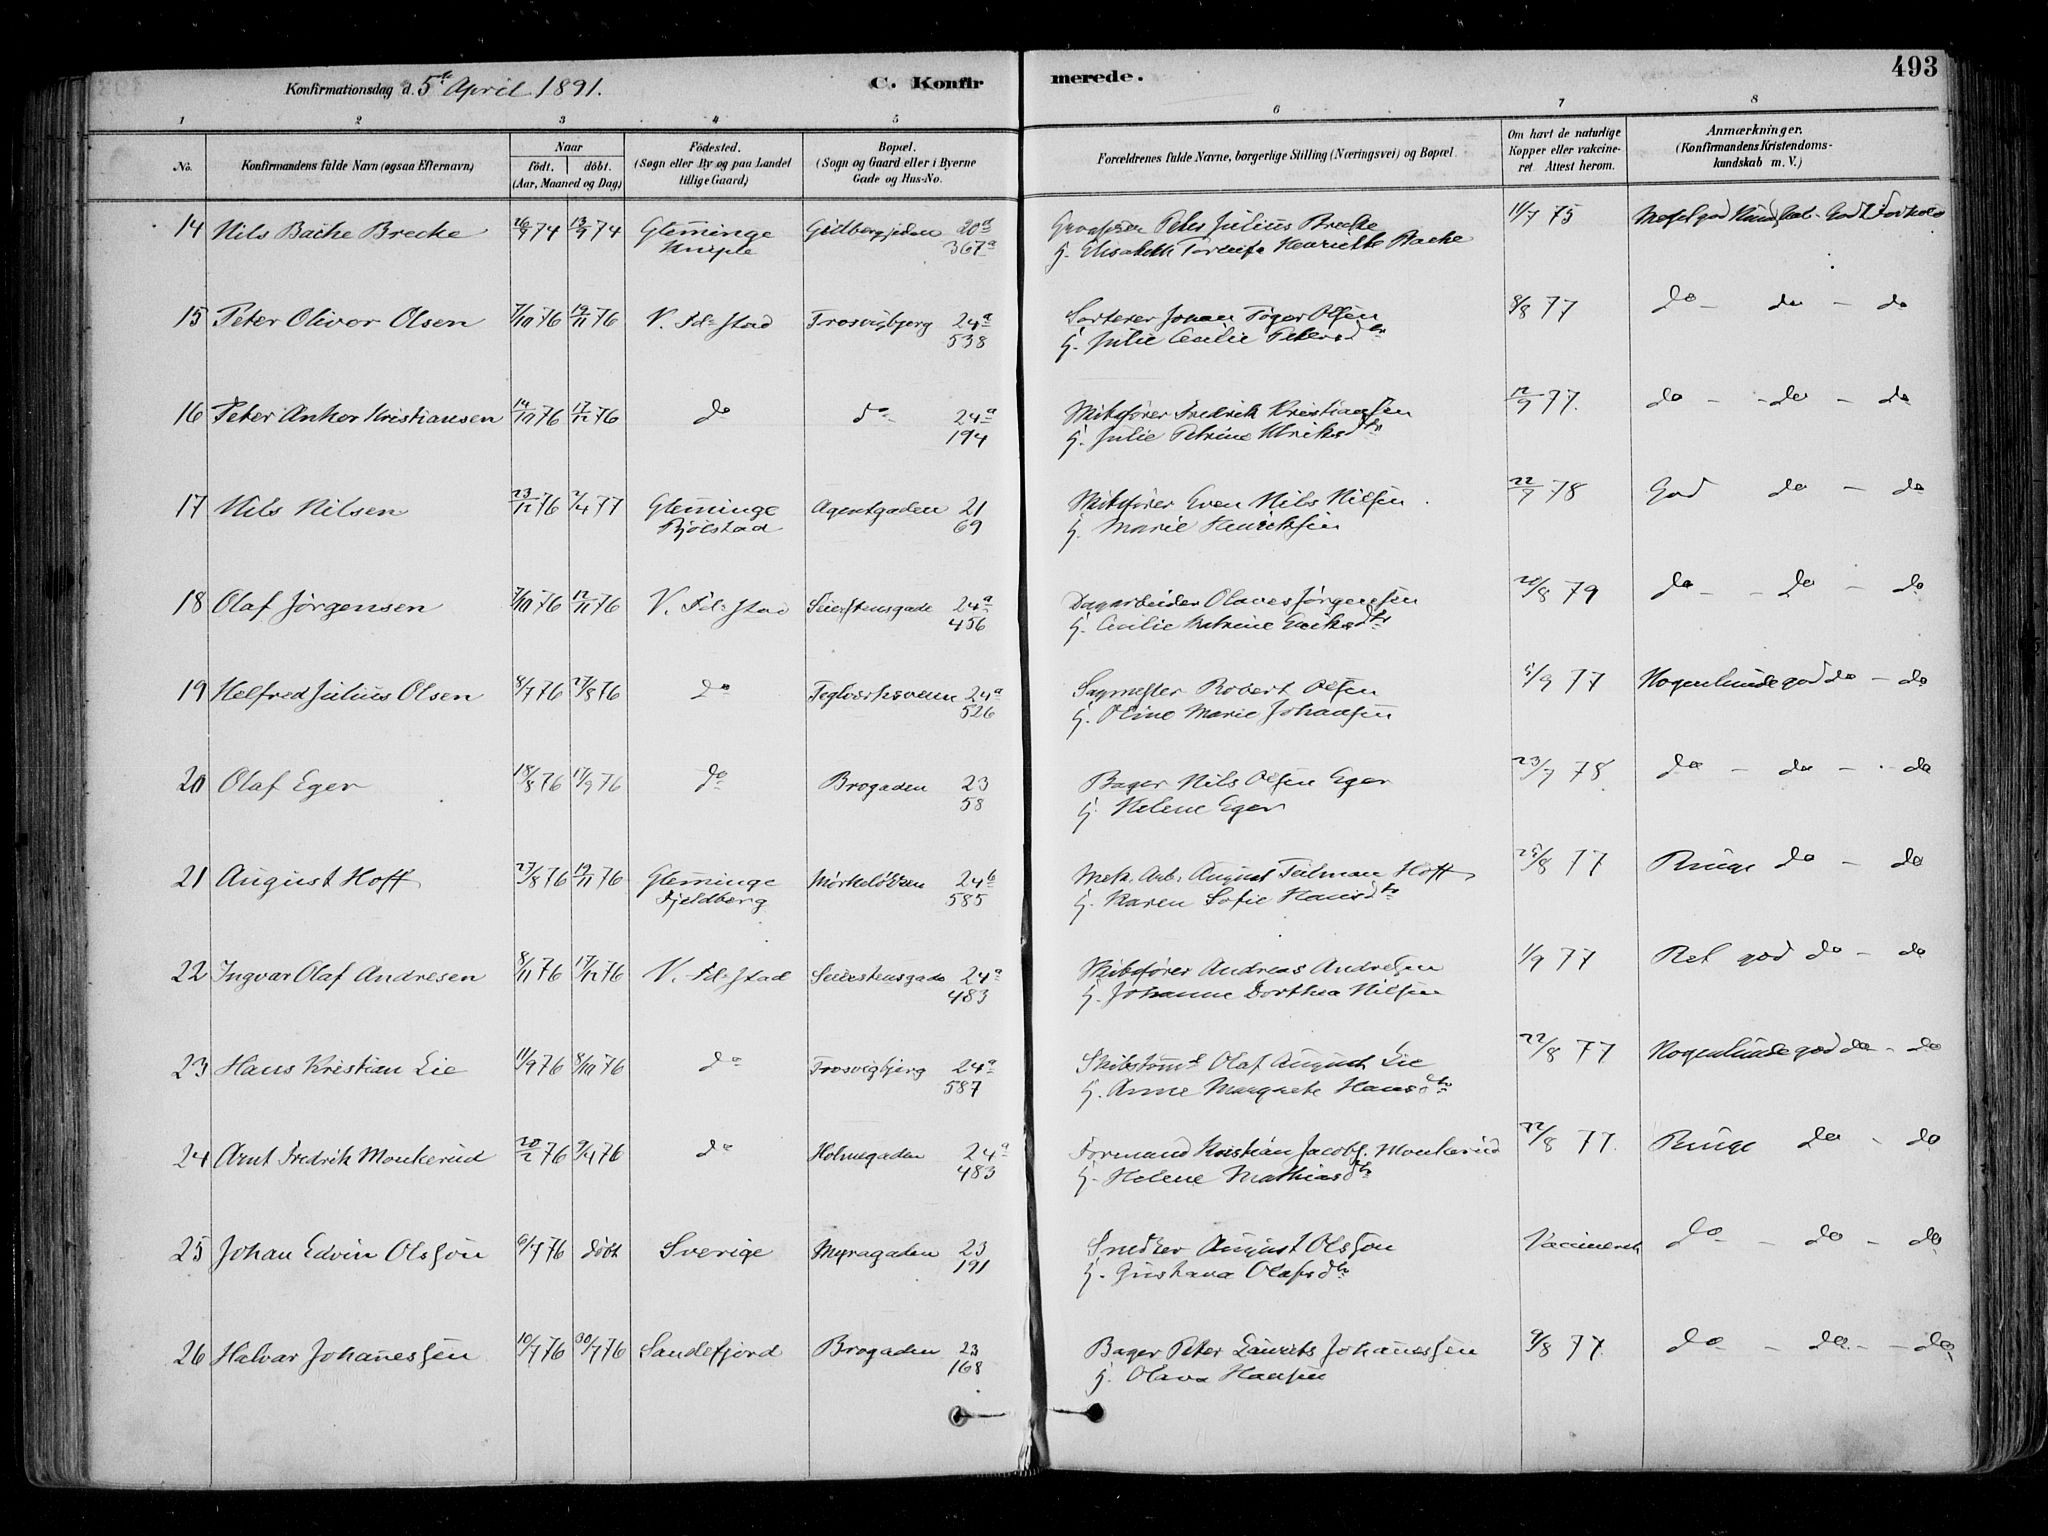 493
Konfirmationsdag d. 5te April 1891. C. Konfir merede.
1 2 3 4 5 6 7 8
No. Konfirmandens fulde Navn (ogsaa Efternavn) Naar Födt. döbt. (Aar, Maaned og Dag) Födested. (Sogn eller By og paa Landet tillige Gaard) Bopæl. (Sogn og Gaard eller i Byerne Gade og Hus-No. Forældrenes fulde Navne, borgerlige Stilling (Næringsvei) og Bopæl. Om havt de naturlige Kopper eller vakcineret Attest herom. Anmærkninger. (Konfirmandens Kristendomskundskab m. V.)
14 Nils Bache Brecke 26/9 74 13/9 74 Glemminge 20d Peter Julius Brecke 11/7 75 Meget god
367a Elisabeth Henriette Bache
15 Peter Olivor Olsen 7/10 76 19/11 76 V. Fd:stad Trosvigbjerg 24a Sorterer Johan Olsen 8/8 77 do - do - do
538 H. Julie Cecilie Petersdtr
16 Peter Anker Kristiansen 14/10 76 17/12 76 do do 24a Skibsfører Fredrik Kristiansen 12/9 77. do - do - do
194 H. Julie Petrine Ulriksdtr
17 Nils Nilsen 23/12 76 2/4 77 Glemminge Agentgaden 21 Skibsfører Even Nils Nilsen 22/9 78 God do - do
Bjölstad 69 H. Marie Henriksen
18 Olaf Jörgensen 7/10 76 12/11 76 V. Fd:stad Seierstensgade 24a Dagarbeider Olaves Jörgensen 20/8 79 do - do - do
456 H. Cecilie Katrine
19 Helfred Julius Olsen 8/7 76 27/8 76 do 24a Sagmester Robert Olsen 5/9 77 Nogenlunde god do - do
526 H. Oline Marie Johansen
20 Olaf Eger 18/8 76 17/9 76 do Brogaden 23 Bager Nils Olsen Eger 23/7 78 do - do - do
58 H. Helene Eger
21 August Hoff 27/8 76 19/11 76 Glemminge 24b Mek. Arb. August Tilman Hoff 25/8 77 Ringe do - do
Fjeldberg 585 H. Karen Sofie Hansdtr
22 Ingvar Olaf Andresen 8/11 76 17/12 76 V. Fd:stad Seierstensgade 24a Skibsfører Andreas Andresen 1/9 77 Ret god do - do
483 H. Johanne Dorthea Nilsen
23 Hans Kristian Lie 11/9 76 8/10 76 do Trosvigbjerg 24a Skibstømmd Olaf August Lie 22/8 77 Nogenlunde god do - do
587 H. Anne Margrete Hansdtr
24 Arnt Fredrik Monkerud 20/2 76 9/4 76 do Holmegaden 24a Formand Kristian Jacobs. Monkerud 22/8 77. Ringe do - do
483 H. Helene Mathiasdtr
25 Johan Edvin Olsson 6/7 76 döbt Sverige Myragaden 23 Snedker August Olsson Vaccineret do - do - do
191 H. Gustava Olafsdtr
26 Halvar Johannessen 10/7 76 30/7 76 Sandefjord Brogaden 23 Bager Peter Laurits Johannessen 9/8 77. do - do - do
168 H. Olava Hansen